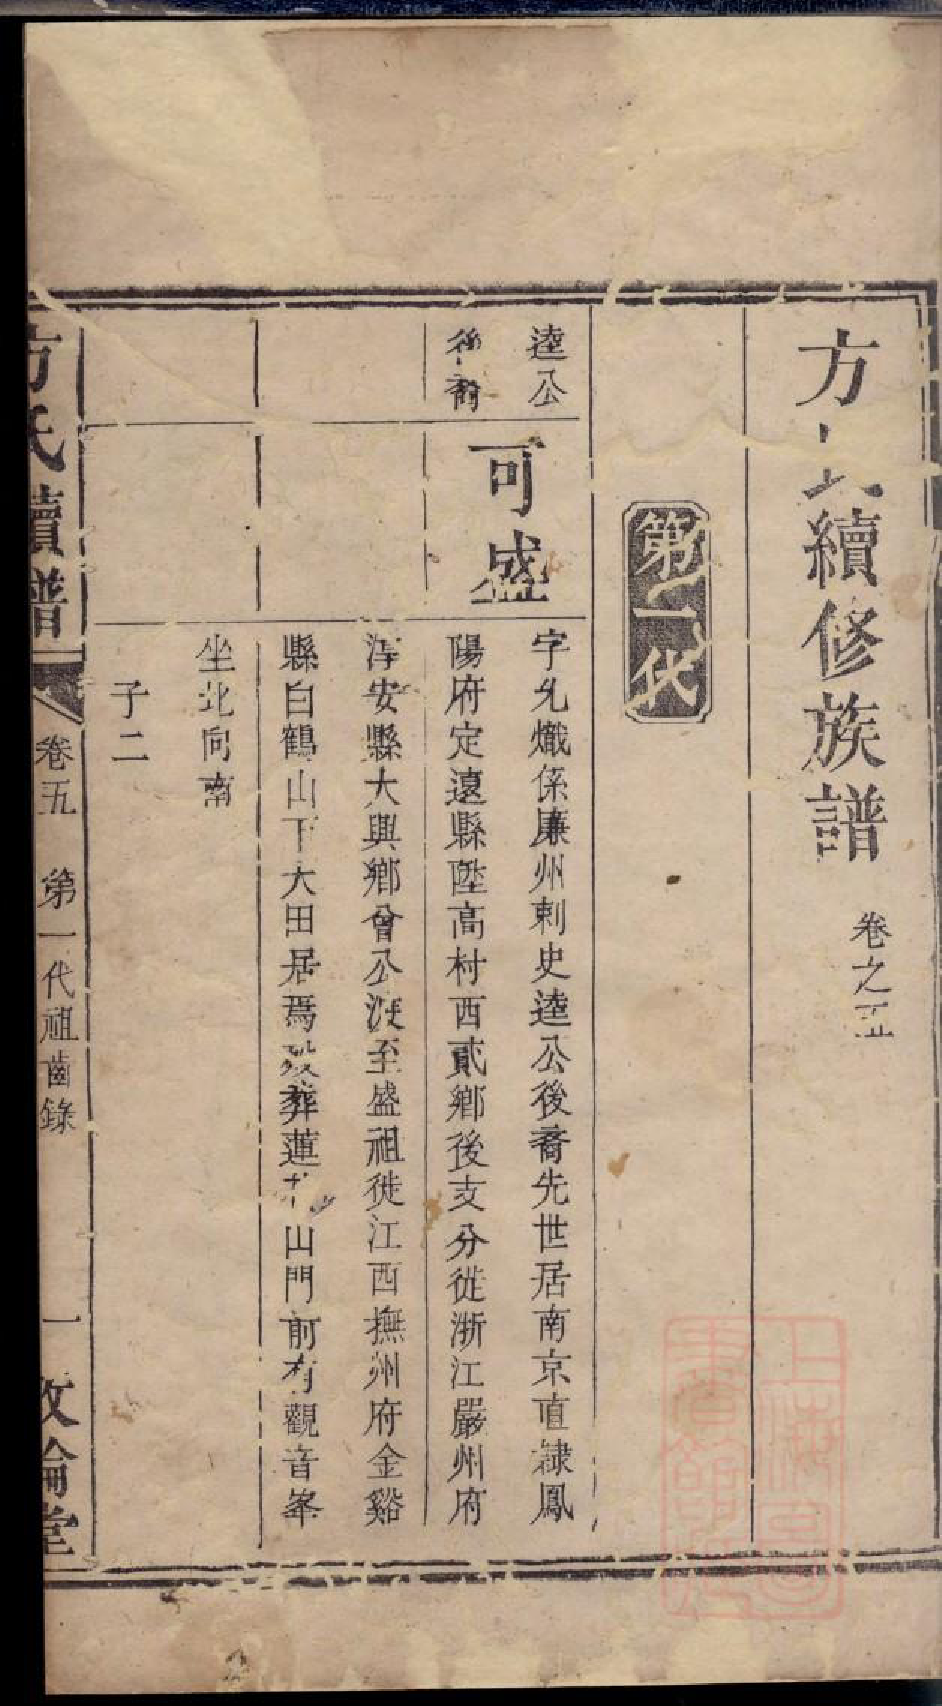 方氏續修族譜 卷之五
第一代
逵公
後裔
可盛
字允熾係廉州刺史逵公後裔先世居南京直隷鳳
陽府定遠縣陞高村西貳鄉後支分徙浙江嚴州府
淳安縣大興鄉曾公派至盛祖徙江西撫州府金谿
縣白鶴山下大田居焉歿葬蓮山門前有觀音峯
坐北向南
子二
方氏續譜 卷五 第一代祖齒錄 一 敦倫堂
上海圖書館藏